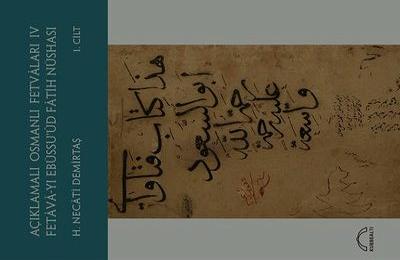 AÇIKLAMALI OSMANLI FETVÂLARI IV
FETÂVÂ-YI EBÛSSU'ÛD FÂTİH NÜSHASI
I. CİLT
H. NECÂTİ DEMİRTAŞ
هذا كتاب فتاوى
أبو السعود
رحمة الله
عليه رحمة
واسعة
KUBBEALTI